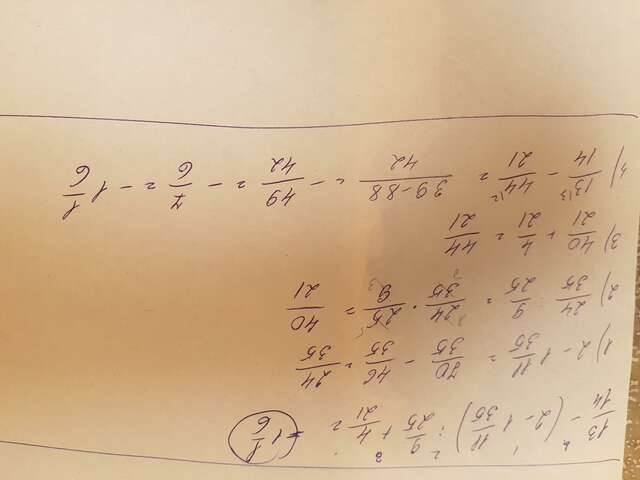 13/14 - (2 - 1 11/35) : 9/25 + 4/21 = -1 1/6
1) 2 - 1 11/35 = 70/35 - 46/35 = 24/35
2) 24/35 : 9/25 = 24/35 · 25/9 = 40/21
3) 40/21 + 4/21 = 44/21
4) 13/14 - 44/21 = 39-88/42 = -49/42 = -7/6 = -1 1/6